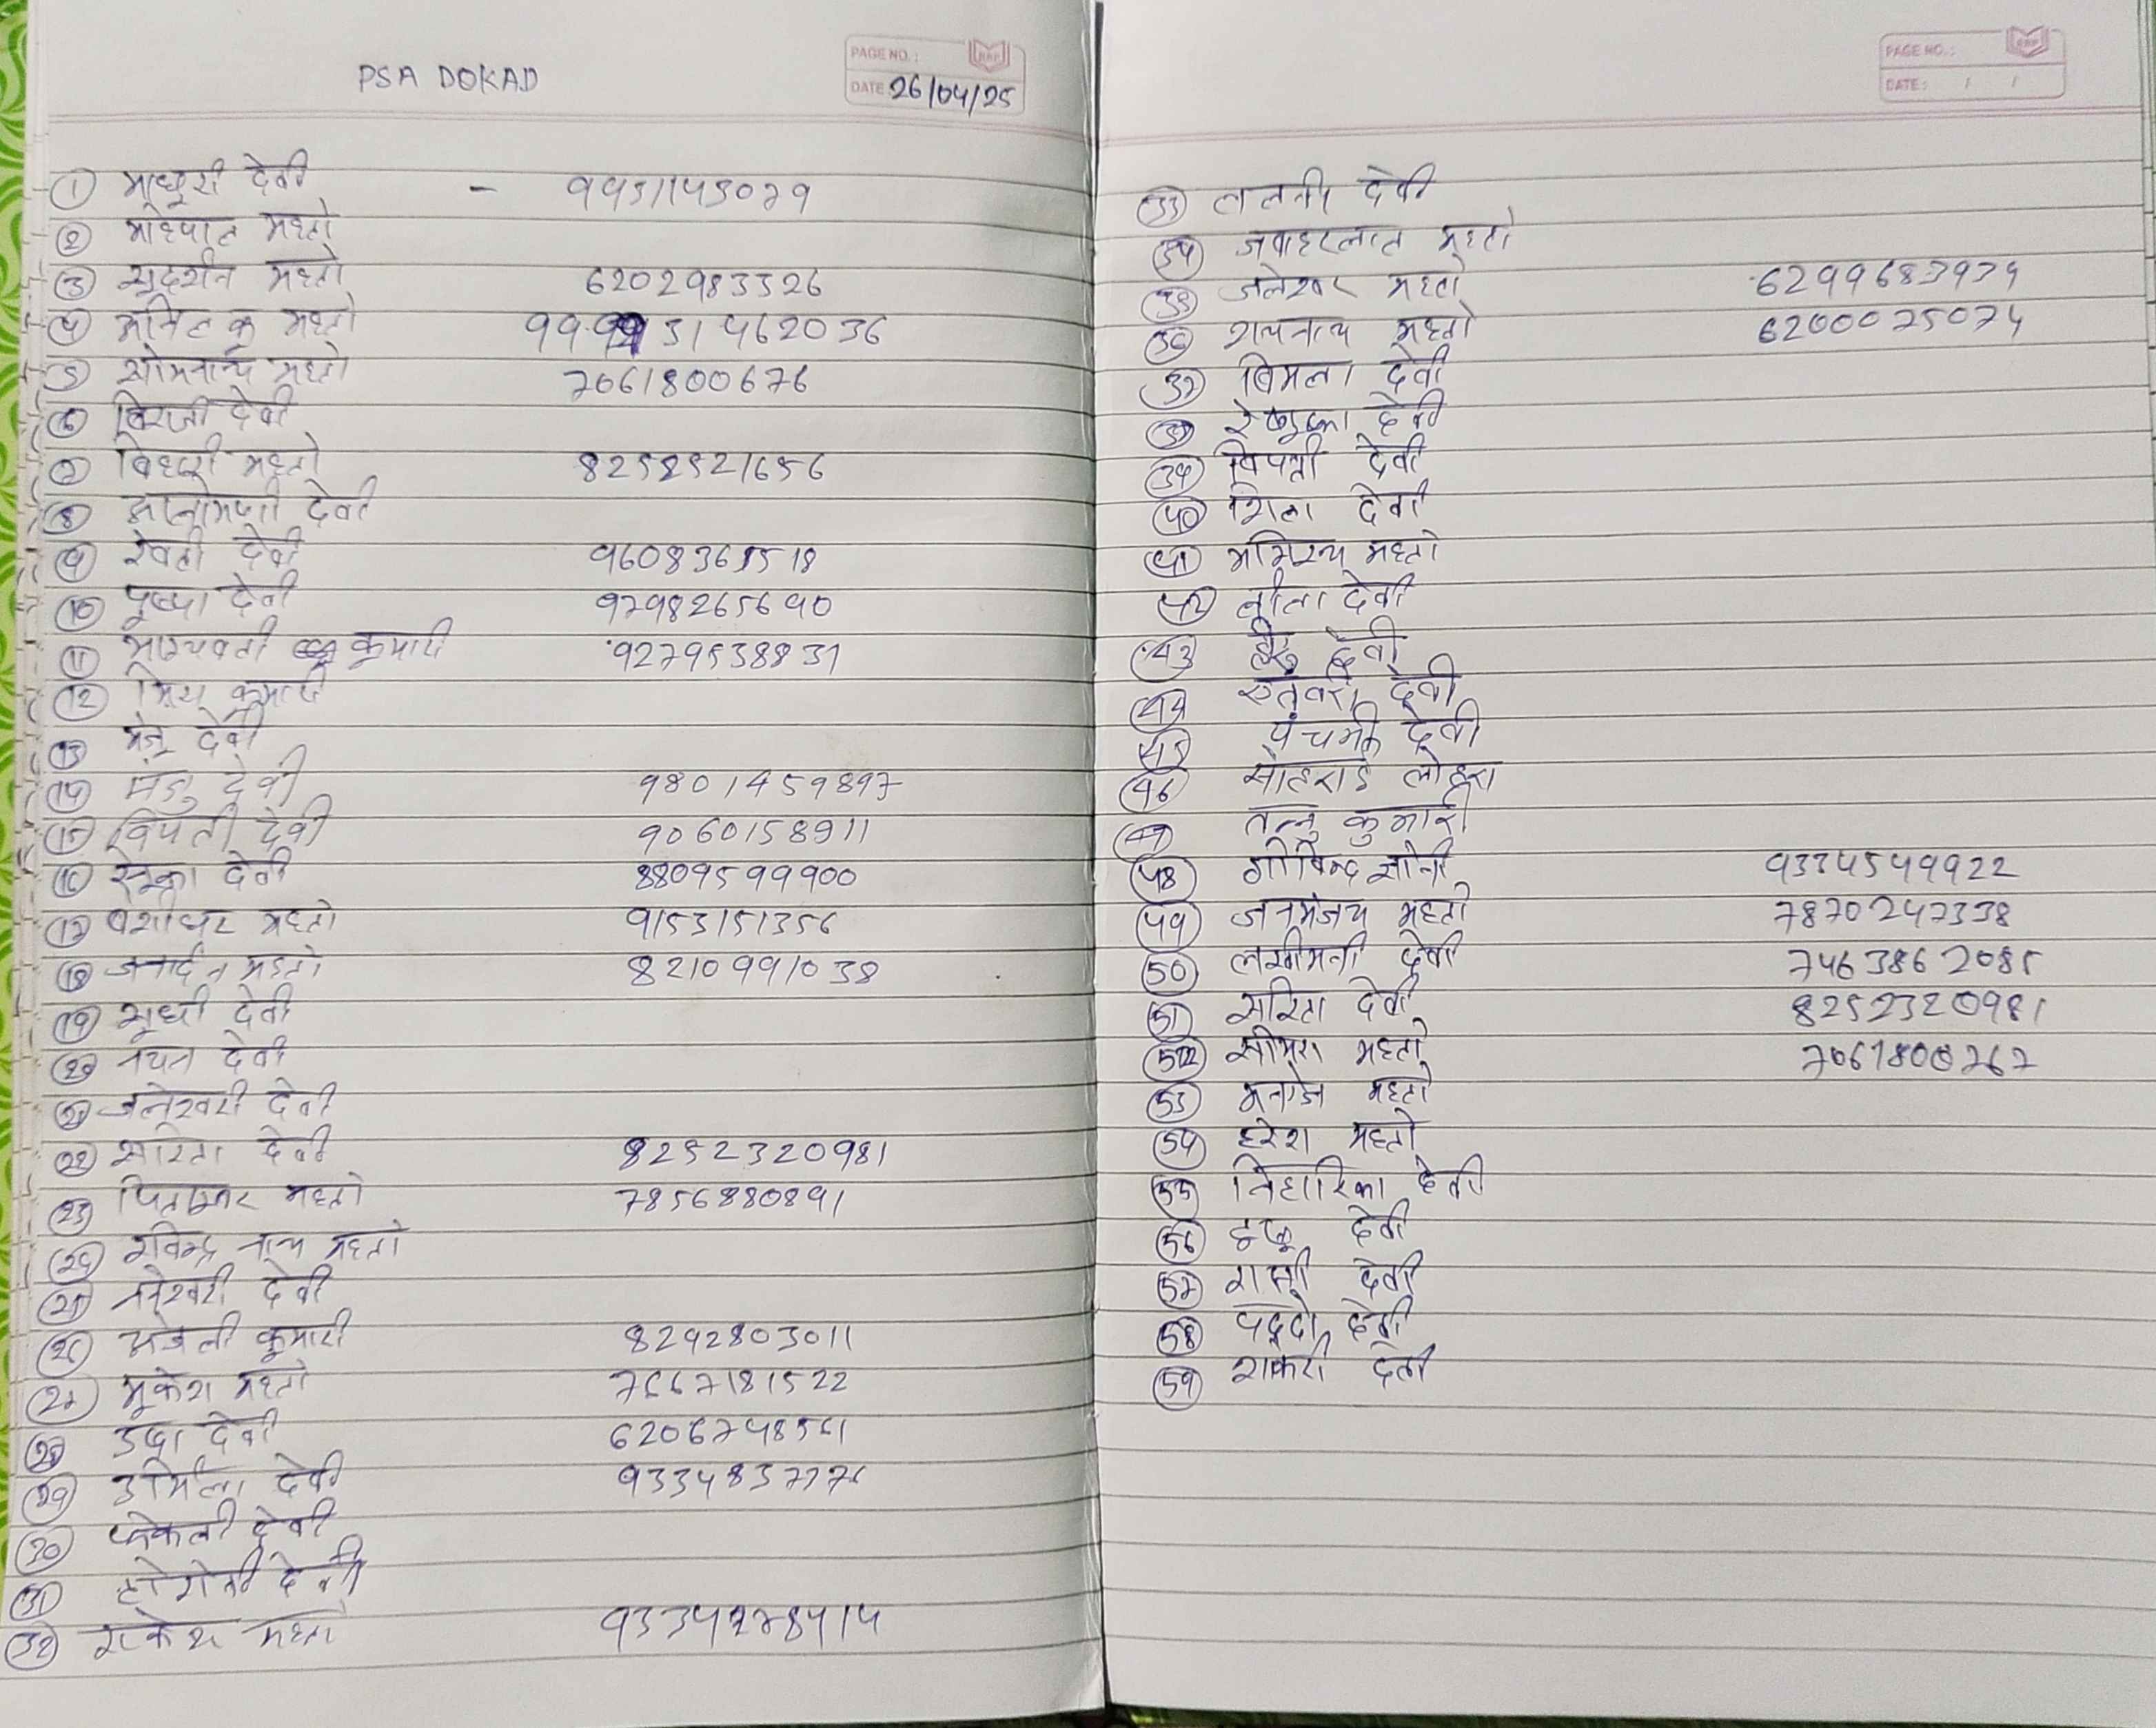 PSA DOKAD
PAGE NO.:
DATE: 26/04/25
① माधुरी देवी - 9951143079
② महिपाल महतो
③ सुदर्शन महतो 6202983326
④ अमित कु महतो
⑤ सोमनाथ महतो 7061800676
⑥ बिरजी देवी
⑦ बिहारी महतो 8252521656
⑧ देवी
⑨ रेवती देवी
⑩ पुष्पा देवी 9798265690
⑪ भाग्यवती कुमारी 9279538831
⑫ कुमारी
⑬ मंजू देवी
⑭ मंजु देवी 9801459897
⑮ विपती देवी 9060158911
⑯ देवी 8809599900
⑰ बंशीधर महतो 9153151356
⑱ जनार्दन महतो 8210991038
⑲ सुधी देवी
⑳ नयन देवी
㉑ जलेश्वरी देवी
㉒ सरिता देवी 8252320981
㉓ पिताम्बर महतो 7856880891
㉔ रविन्द्र नाथ महतो
㉕ देवी
㉖ अंजली कुमारी 8292803011
㉗ मुकेश महतो 7667181522
㉘ देवी
㉙ उर्मिला देवी
㉚ देवी
㉛ देवी
㉜ राकेश महतो
PAGE NO.:
DATE: / /
㉝ ललनी देवी
㉞ जवाहरलाल महतो
㉟ जलेश्वर महतो 6299683939
㊱ महतो 6200075074
㊲ बिमला देवी
㊳ रेणुका देवी
㊴ विपती देवी
㊵ शिला देवी
㊶ महतो
㊷ देवी
㊸ देवी
㊹ एतवरी देवी
㊺ पंचमी देवी
㊻ सोहराई लोहरा
㊼ तन्नु कुमारी
㊽ गोविन्द सोनी 9334549922
㊾ जनमंजय महतो 7870247338
㊿ लखीमनी देवी 7463862085
(51) सरिता देवी 8252320981
(52) सोमरा महतो 7061800767
(53) मनोज महतो
(54) हरेश महतो
(55) निहारिका देवी
(56) देवी
(57) देवी
(58) देवी
(59) देवी